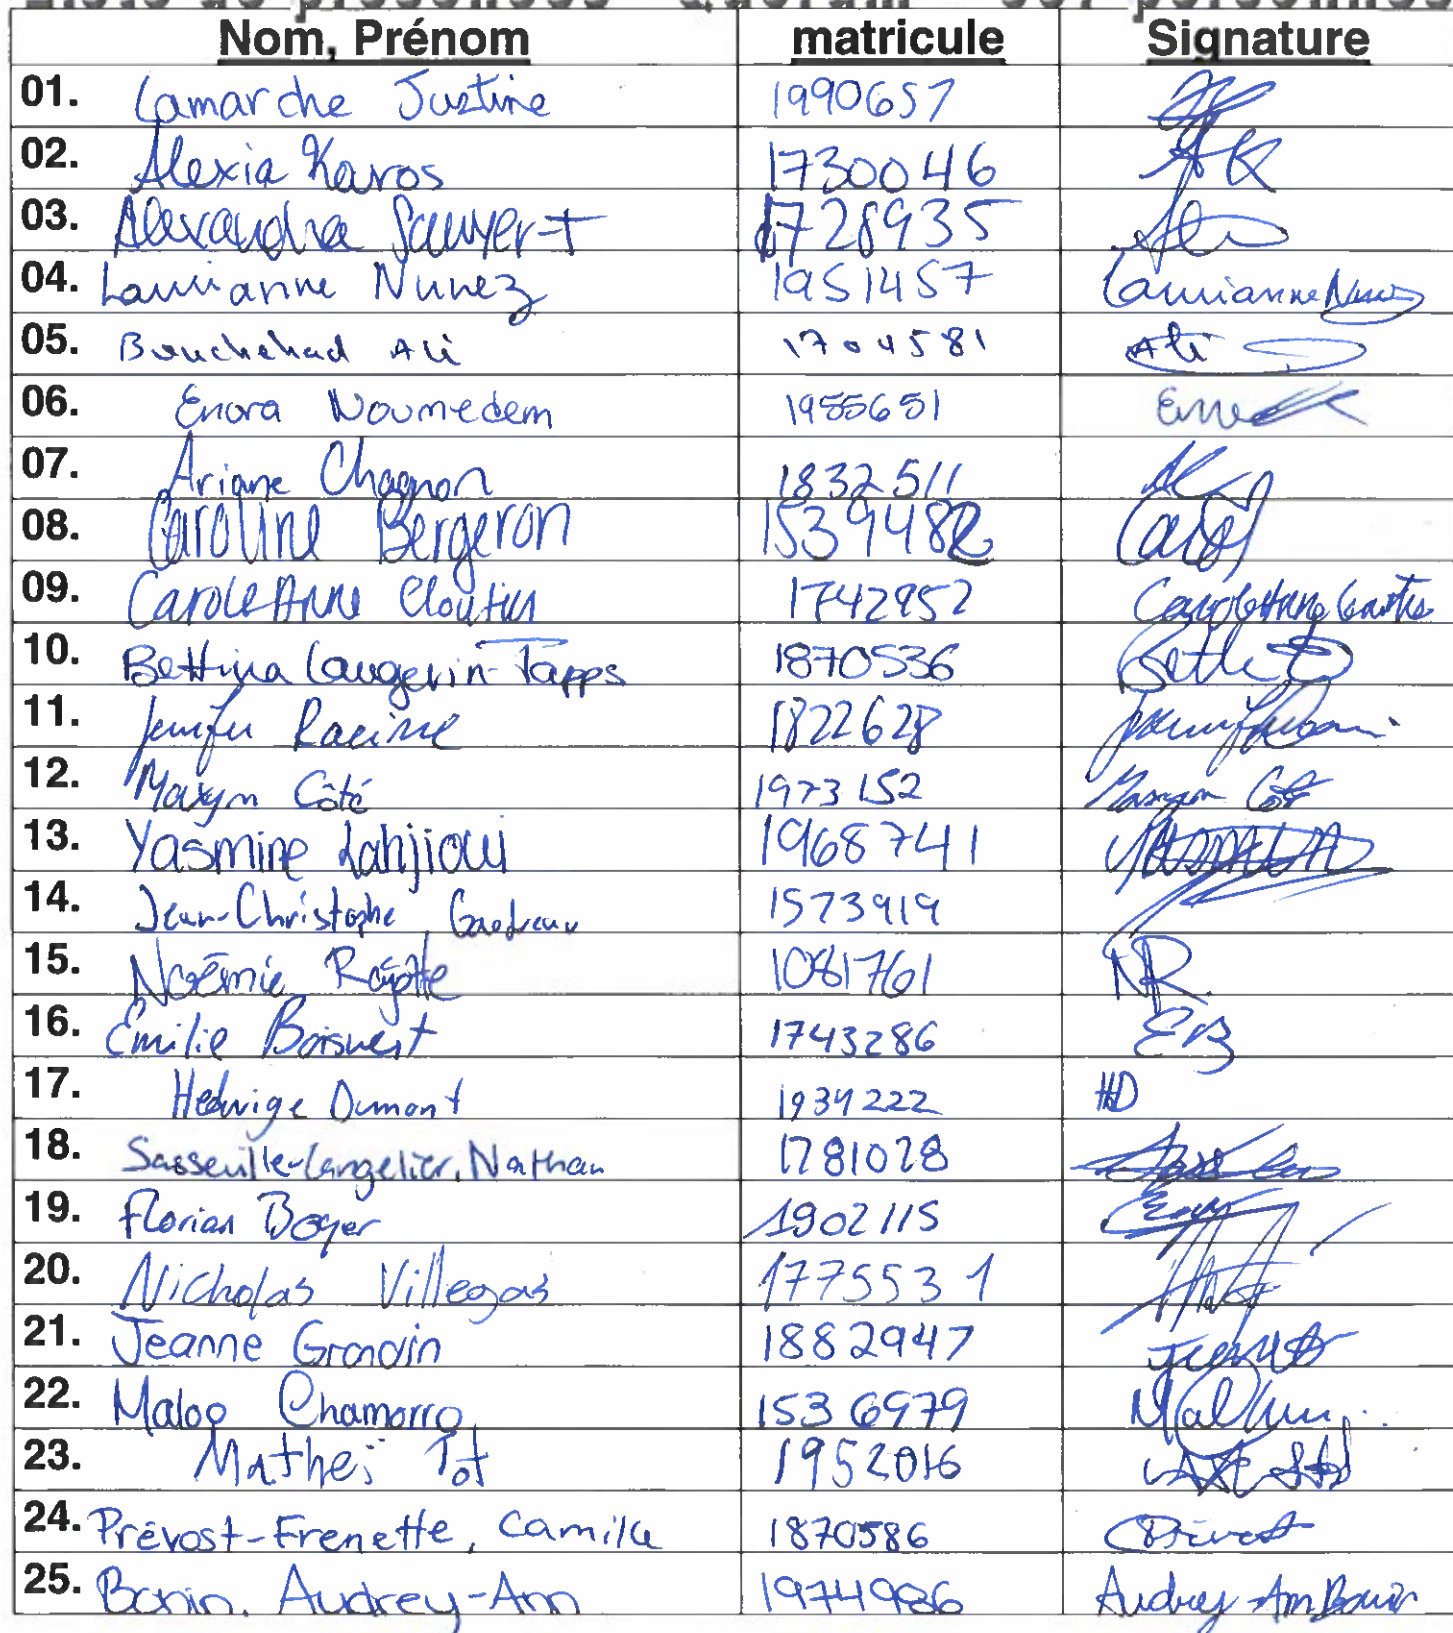 Liste de présences Quorum
Nom, Prénom matricule Signature
01. Lamarche Justine 1990657
02. Alexia Karos 1730046 AK
03. Alexandra Sawyer-t 1728935
04. Laurianne Nunez 1951457 Laurianne Nunez
05. Bouchehad Ali 1704581 Ali
06. Enora Noumedem 1955651
07. Ariane Chagnon 1832511 AC
08. Caroline Bergeron 1539482 Caro
09. Carole Anne Cloutier 1742952 Carole Anne Cloutier
10. Bettina Laugerin-Tapps 1870536
11. Jenifer Racine 1822628
12. Maxym Côté 1973152 Maxym Côté
13. Yasmine Lahjioui 1968741
14. Jean-Christophe Gaudreau 1573919
15. Noémie Rayotte 1081761 NR
16. Emilie Boisvert 1743286 EB
17. Hedwige Dumont 1934222 HD
18. Sasseville-Langelier, Nathan 1781028
19. Florian Boyer 1902115
20. Nicholas Villegas 1775531
21. Jeanne Grondin 1882947 Jeanne
22. Maloo Chamorro 1536979
23. Matheï Tot 1952016
24. Prévost-Frenette, Camille 1870586
25. Bonin, Audrey-Ann 1974986 Audrey-Ann Bonin